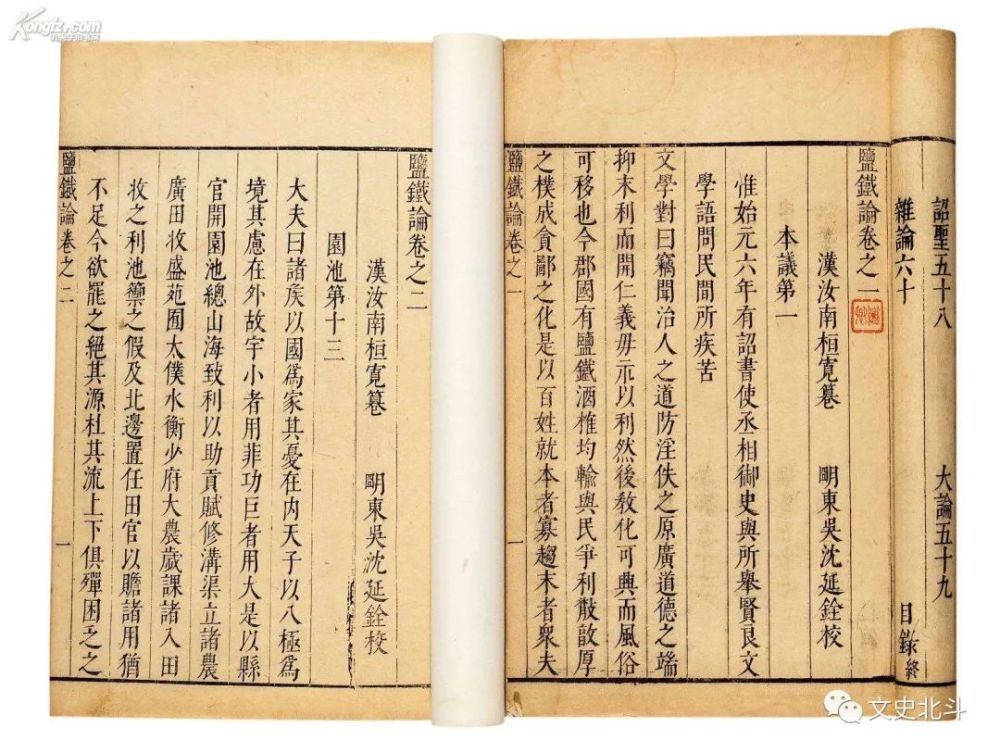 詔聖五十八 大論五十九
雜論六十 目錄終
鹽鐵論卷之一
漢汝南桓寬篹 明東吳沈延銓校
本議第一
惟始元六年有詔書使丞相御史與所舉賢良文
學語問民間所疾苦
文學對曰竊聞治人之道防淫佚之原廣道德之端
抑末利而開仁義毋示以利然後教化可興而風俗
可移也今郡國有鹽鐵酒榷均輸與民爭利散敦厚
之樸成貪鄙之化是以百姓就本者寡趨末者衆夫
鹽鐵論卷之一 一
鹽鐵論卷之二
漢汝南桓寬篹 明東吳沈延銓校
園池第十三
大夫曰諸矦以國爲家其憂在内天子以八極爲
境其慮在外故宇小者用菲功巨者用大是以縣
官開園池總山海致利以助貢賦修溝渠立諸農
廣田牧盛苑囿太僕水衡少府大農歲課諸入田
牧之利池籞之假及北邊置任田官以贍諸用猶
不足今欲罷之絕其源杜其流上下俱殫困乏之
鹽鐵論卷之二 一
Kongfz.com
文史北斗